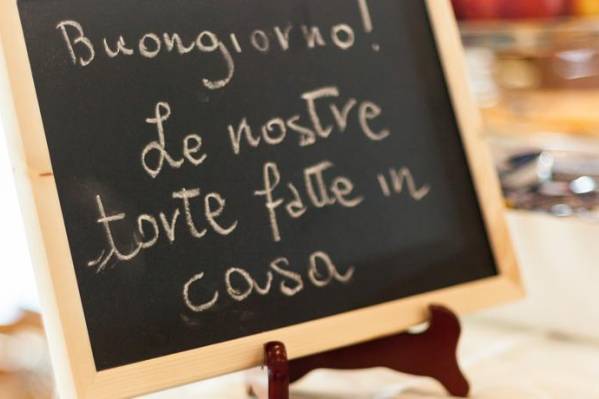 Buongiorno!
Le nostre
torte fatte in
casa